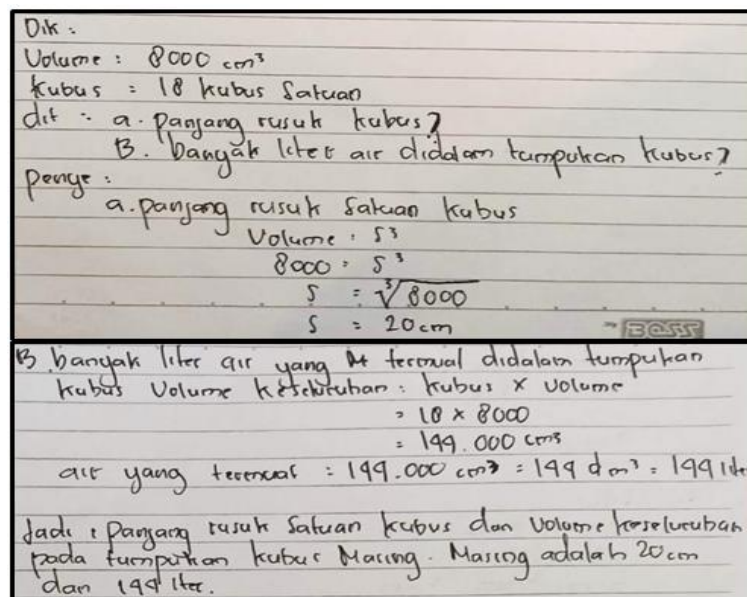 Dik :
Volume : 8000 cm³
Kubus = 18 kubus Satuan
dit : a. panjang rusuk kubus?
B. banyak liter air didalam tumpukan kubus?
Penye :
a. panjang rusuk Satuan kubus
Volume : S³
8000 = S³
S = ∛8000
S = 20 cm
BOSS
B banyak liter air yang termual didalam tumpukan
kubus Volume keseluruhan : kubus x volume
= 18 x 8000
= 144.000 cm³
air yang termuat : 144.000 cm³ = 144 dm³ = 144 liter
Jadi : Panjang rusuk Satuan kubus dan Volume keseluruhan
pada tumpukan kubus Masing. Masing adalah 20 cm
dan 144 liter.